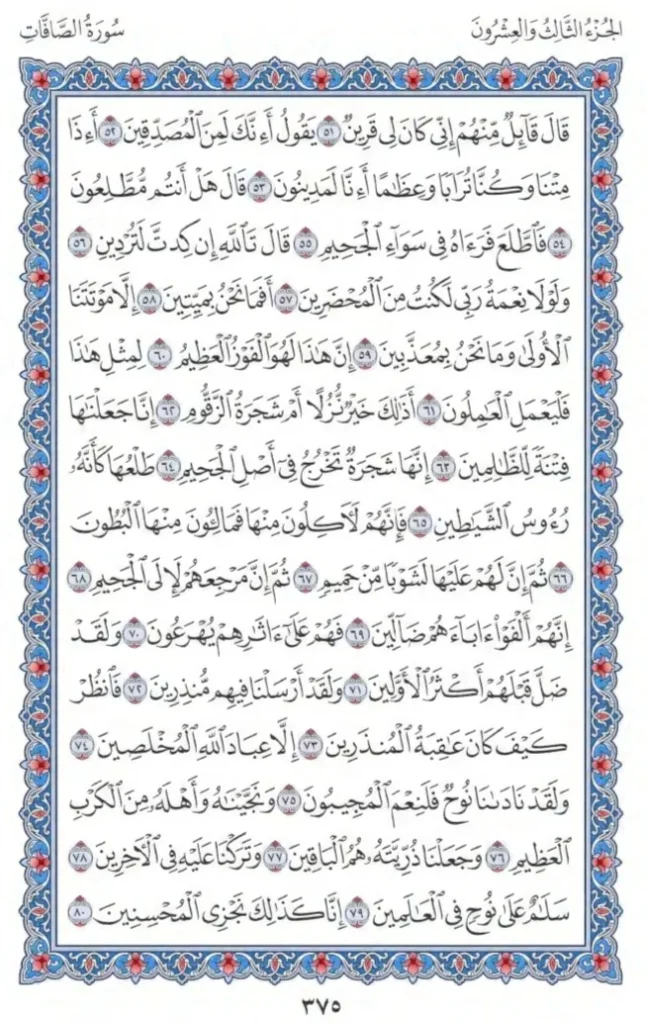 الجُزْءُ الثَّالِثُ وَالعِشْرُونَ
سُورَةُ الصَّافَّاتِ
قَالَ قَآئِلٌ مِّنْهُمْ إِنِّى كَانَ لِى قَرِينٌ ٥١ يَقُولُ أَءِنَّكَ لَمِنَ ٱلْمُصَدِّقِينَ ٥٢ أَءِذَا
مِتْنَا وَكُنَّا تُرَابًا وَعِظَٰمًا أَءِنَّا لَمَدِينُونَ ٥٣ قَالَ هَلْ أَنتُم مُّطَّلِعُونَ
٥٤ فَٱطَّلَعَ فَرَءَاهُ فِى سَوَآءِ ٱلْجَحِيمِ ٥٥ قَالَ تَٱللَّهِ إِن كِدتَّ لَتُرْدِينِ ٥٦
وَلَوْلَا نِعْمَةُ رَبِّى لَكُنتُ مِنَ ٱلْمُحْضَرِينَ ٥٧ أَفَمَا نَحْنُ بِمَيِّتِينَ ٥٨ إِلَّا مَوْتَتَنَا
ٱلْأُولَىٰ وَمَا نَحْنُ بِمُعَذَّبِينَ ٥٩ إِنَّ هَٰذَا لَهُوَ ٱلْفَوْزُ ٱلْعَظِيمُ ٦٠ لِمِثْلِ هَٰذَا
فَلْيَعْمَلِ ٱلْعَٰمِلُونَ ٦١ أَذَٰلِكَ خَيْرٌ نُّزُلًا أَمْ شَجَرَةُ ٱلزَّقُّومِ ٦٢ إِنَّا جَعَلْنَٰهَا
فِتْنَةً لِّلظَّٰلِمِينَ ٦٣ إِنَّهَا شَجَرَةٌ تَخْرُجُ فِىٓ أَصْلِ ٱلْجَحِيمِ ٦٤ طَلْعُهَا كَأَنَّهُۥ
رُءُوسُ ٱلشَّيَٰطِينِ ٦٥ فَإِنَّهُمْ لَءَاكِلُونَ مِنْهَا فَمَالِـُٔونَ مِنْهَا ٱلْبُطُونَ
٦٦ ثُمَّ إِنَّ لَهُمْ عَلَيْهَا لَشَوْبًا مِّنْ حَمِيمٍ ٦٧ ثُمَّ إِنَّ مَرْجِعَهُمْ لَإِلَى ٱلْجَحِيمِ ٦٨
إِنَّهُمْ أَلْفَوْا۟ ءَابَآءَهُمْ ضَآلِّينَ ٦٩ فَهُمْ عَلَىٰٓ ءَاثَٰرِهِمْ يُهْرَعُونَ ٧٠ وَلَقَدْ
ضَلَّ قَبْلَهُمْ أَكْثَرُ ٱلْأَوَّلِينَ ٧١ وَلَقَدْ أَرْسَلْنَا فِيهِم مُّنذِرِينَ ٧٢ فَٱنظُرْ
كَيْفَ كَانَ عَٰقِبَةُ ٱلْمُنذَرِينَ ٧٣ إِلَّا عِبَادَ ٱللَّهِ ٱلْمُخْلَصِينَ ٧٤
وَلَقَدْ نَادَىٰنَا نُوحٌ فَلَنِعْمَ ٱلْمُجِيبُونَ ٧٥ وَنَجَّيْنَٰهُ وَأَهْلَهُۥ مِنَ ٱلْكَرْبِ
ٱلْعَظِيمِ ٧٦ وَجَعَلْنَا ذُرِّيَّتَهُۥ هُمُ ٱلْبَاقِينَ ٧٧ وَتَرَكْنَا عَلَيْهِ فِى ٱلْءَاخِرِينَ ٧٨
سَلَٰمٌ عَلَىٰ نُوحٍ فِى ٱلْعَٰلَمِينَ ٧٩ إِنَّا كَذَٰلِكَ نَجْزِى ٱلْمُحْسِنِينَ ٨٠
٣٧٥